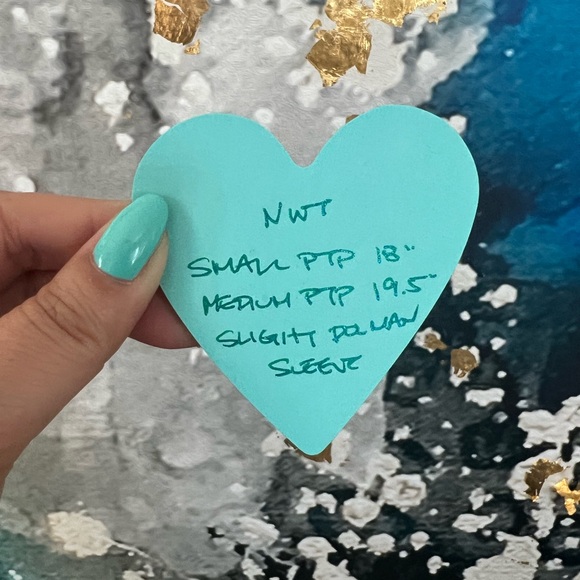 NWT
SMALL PTP 18"
MEDIUM PTP 19.5"
SLIGHT DOLMAN
SLEEVE